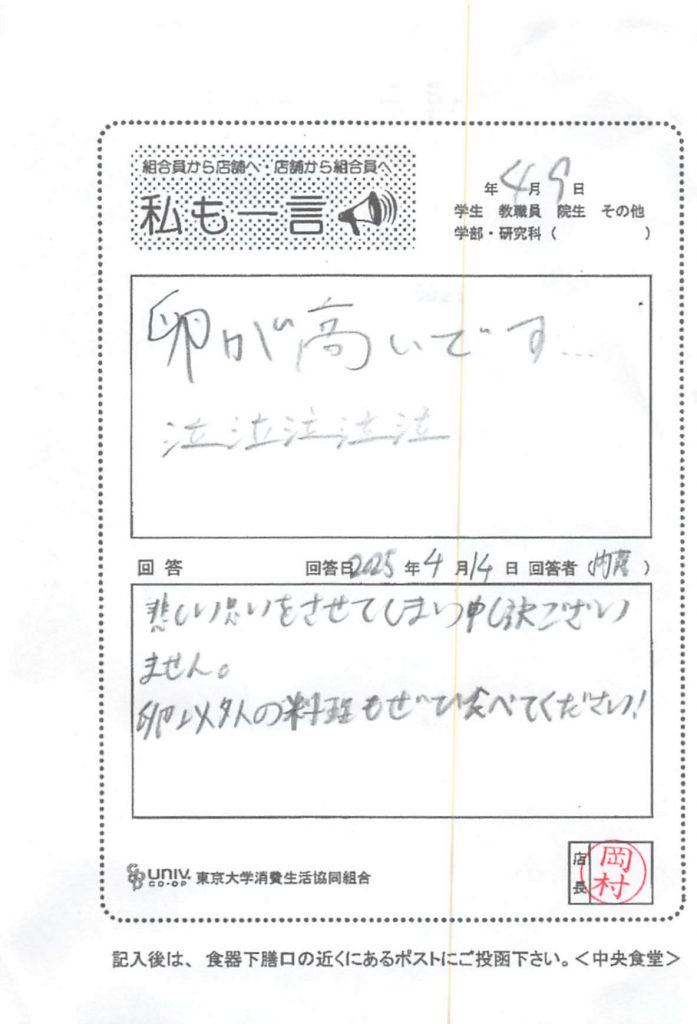 組合員から店舗へ・店舗から組合員へ
私も一言
年 4月 9日
学生 教職員 院生 その他
学部・研究科（ ）
卵が高いです…
泣泣泣泣泣
回答 回答日2025年4月14日 回答者（内藤）
悲しい思いをさせてしまい申し訳ござい
ません。
卵以外の料理もぜひ食べてください!
UNIV. CO-OP 東京大学消費生活協同組合
店長 岡村
記入後は、食器下膳口の近くにあるポストにご投函下さい。＜中央食堂＞